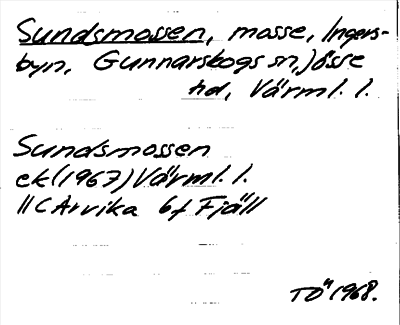 Sundsmossen, mosse, Ingers-
byn, Gunnarskogs sn, Jösse
hd, Värml. l.
Sundsmossen
ek (1967) Värml. l.
11C Arvika 6f Fjäll
TÖ 1968.